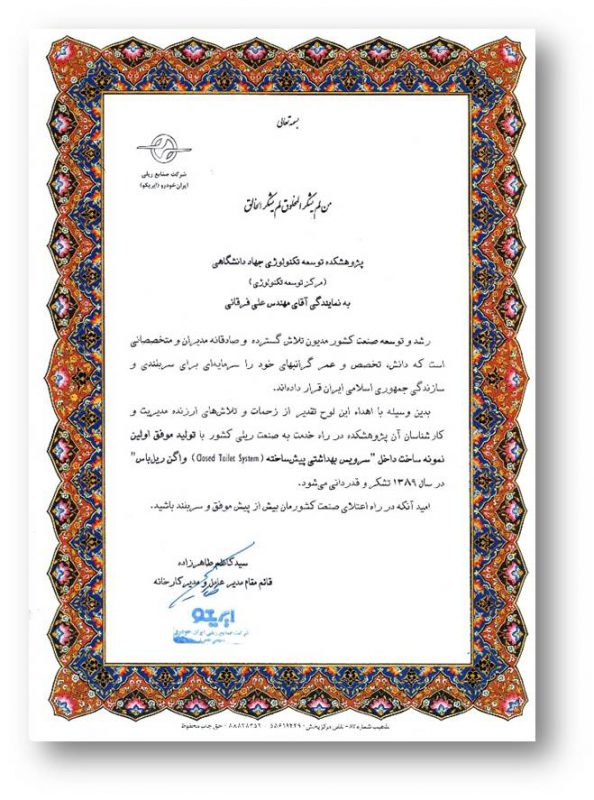 بسمه تعالی
شرکت صنایع ریلی
ایران خودرو (ایریکو)
من لم یشکر المخلوق لم یشکر الخالق
پژوهشکده توسعه تکنولوژی جهاد دانشگاهی
(مرکز توسعه تکنولوژی)
به نمایندگی آقای مهندس علی فرقانی
رشد و توسعه صنعت کشور مدیون تلاش گسترده و صادقانه مدیران و متخصصانی
است که دانش، تخصص و عمر گرانبهای خود را سرمایه‌ای برای سربلندی و
سازندگی جمهوری اسلامی ایران قرار داده‌اند.
بدین وسیله با اهداء این لوح تقدیر از زحمات و تلاش‌های ارزنده مدیریت و
کارشناسان آن پژوهشکده در راه خدمت به صنعت ریلی کشور با تولید موفق اولین
نمونه ساخت داخل "سرویس بهداشتی پیش‌ساخته (Closed Toilet System) واگن ریل‌باس"
در سال ۱۳۸۹ تشکر و قدردانی می‌شود.
امید آنکه در راه اعتلای صنعت کشورمان بیش از پیش موفق و سربلند باشید.
سید کاظم طاهرزاده
قائم مقام مدیر عامل و مدیر کارخانه
ایریکو
شرکت صنایع ریلی ایران خودرو
تلفن مرکز پخش: ۵۵۶۱۹۴۴۹ - ۸۸۸۲۸۳۵۲ - حق چاپ محفوظ